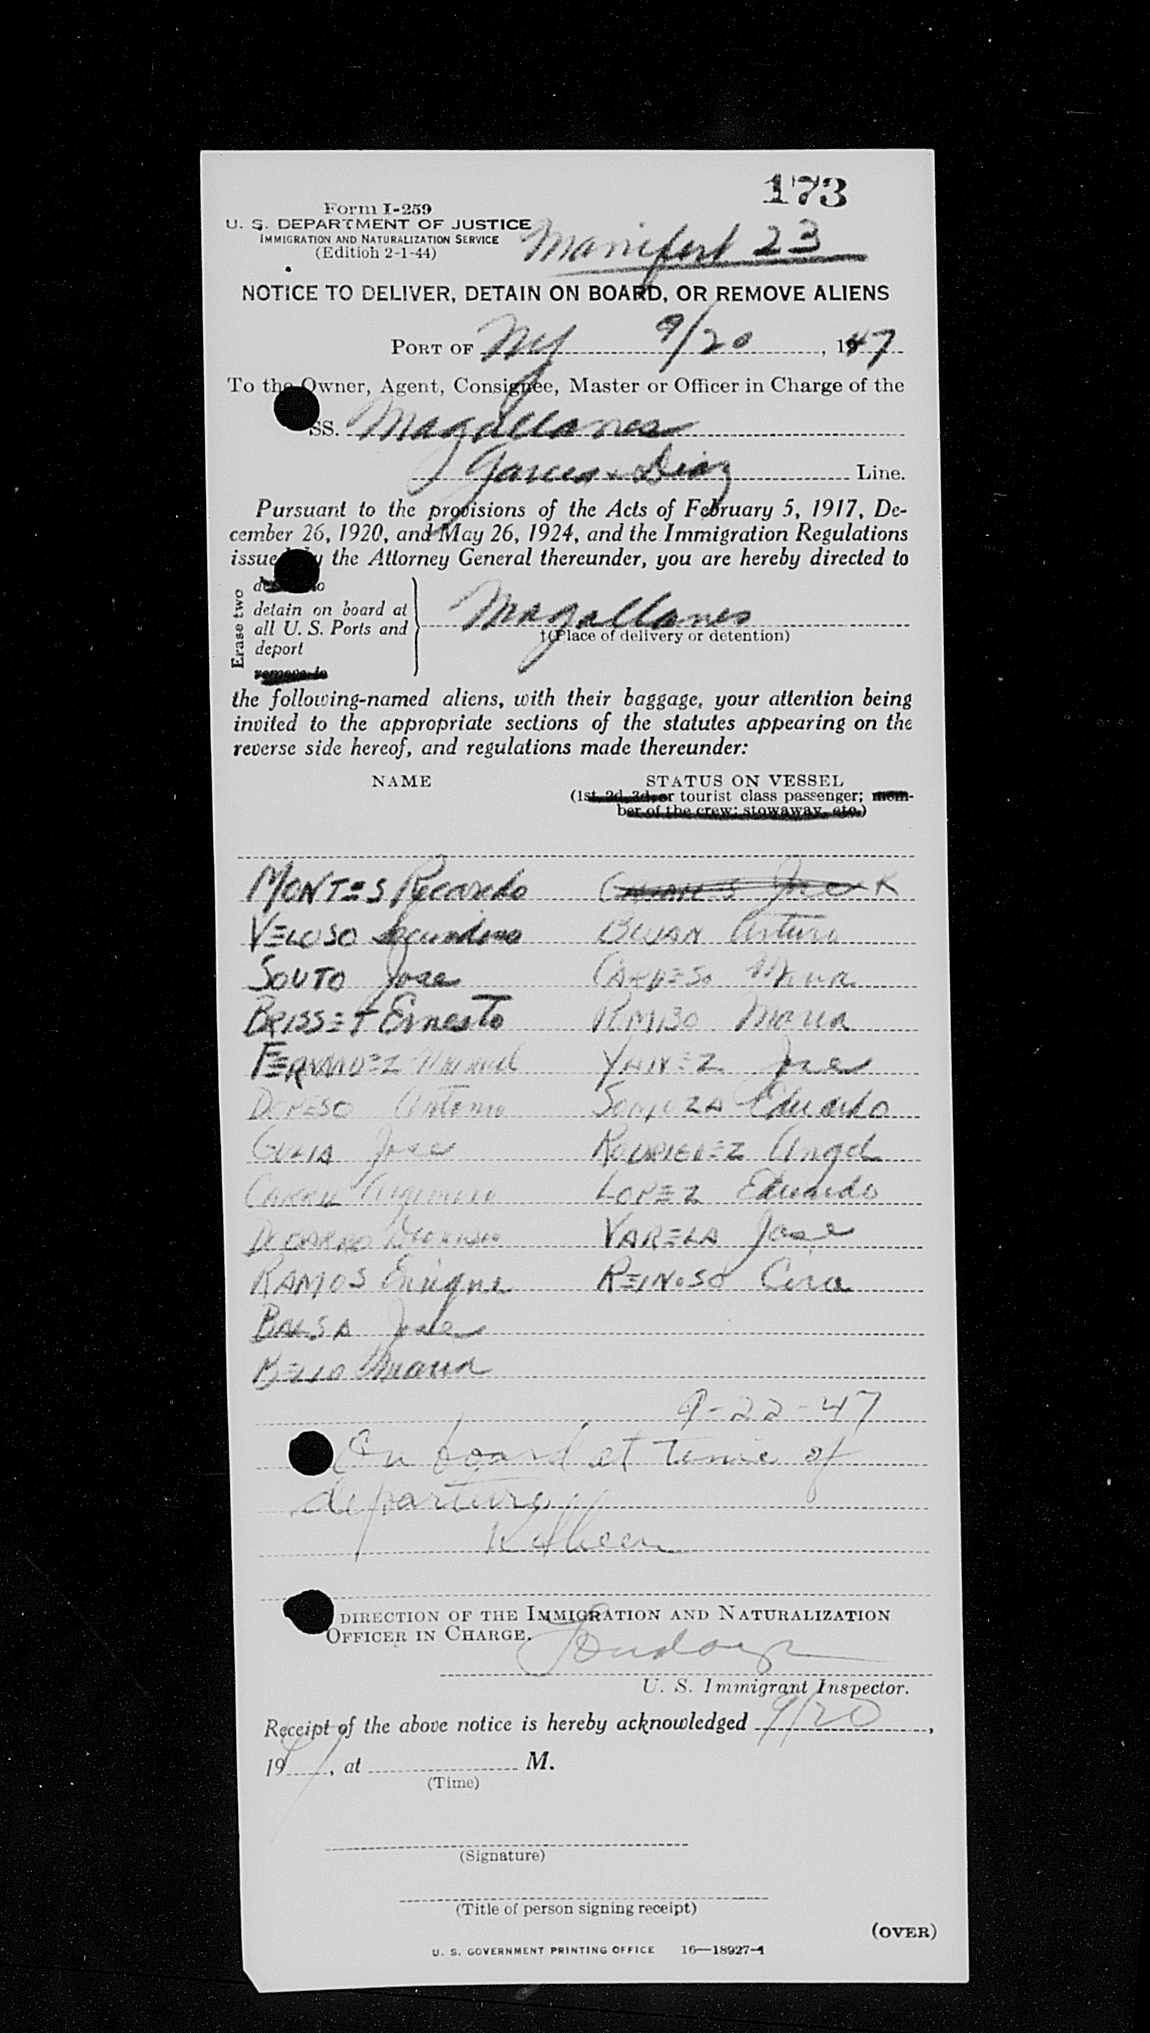 173
Form I-259
U. S. DEPARTMENT OF JUSTICE
IMMIGRATION AND NATURALIZATION SERVICE
(Edition 2-1-44)
Manifest 23
NOTICE TO DELIVER, DETAIN ON BOARD, OR REMOVE ALIENS
PORT OF NY 9/20, 1947
To the Owner, Agent, Consignee, Master or Officer in Charge of the
SS. Magallanes
Garcia & Diaz Line.
Pursuant to the provisions of the Acts of February 5, 1917, De-
cember 26, 1920, and May 26, 1924, and the Immigration Regulations
issued by the Attorney General thereunder, you are hereby directed to
Erase two
detain on board at
all U. S. Ports and
deport
remove to
Magallanes
†(Place of delivery or detention)
the following-named aliens, with their baggage, your attention being
invited to the appropriate sections of the statutes appearing on the
reverse side hereof, and regulations made thereunder:
NAME STATUS ON VESSEL
(1st, 2d, 3d, or tourist class passenger; mem-
ber of the crew; stowaway, etc.)
MONTES Ricardo
VELOSO Secundino Arturo
SOUTO Jose
BRISSET Ernesto Maria
FERNANDEZ Manuel YANEZ Jose
Antonio SOMOZA Eduardo
Jose RODRIGUEZ Angel
LOPEZ Eduardo
VARELA Jose
RAMOS Enrique REINOSO Cira
BALSA Jose
BELLO Maria
9-22-47
On board at time of
departure.
DIRECTION OF THE IMMIGRATION AND NATURALIZATION
OFFICER IN CHARGE.
U. S. Immigrant Inspector.
Receipt of the above notice is hereby acknowledged 9/20,
1947, at M.
(Time)
(Signature)
(Title of person signing receipt)
(OVER)
U. S. GOVERNMENT PRINTING OFFICE 16—18927-1